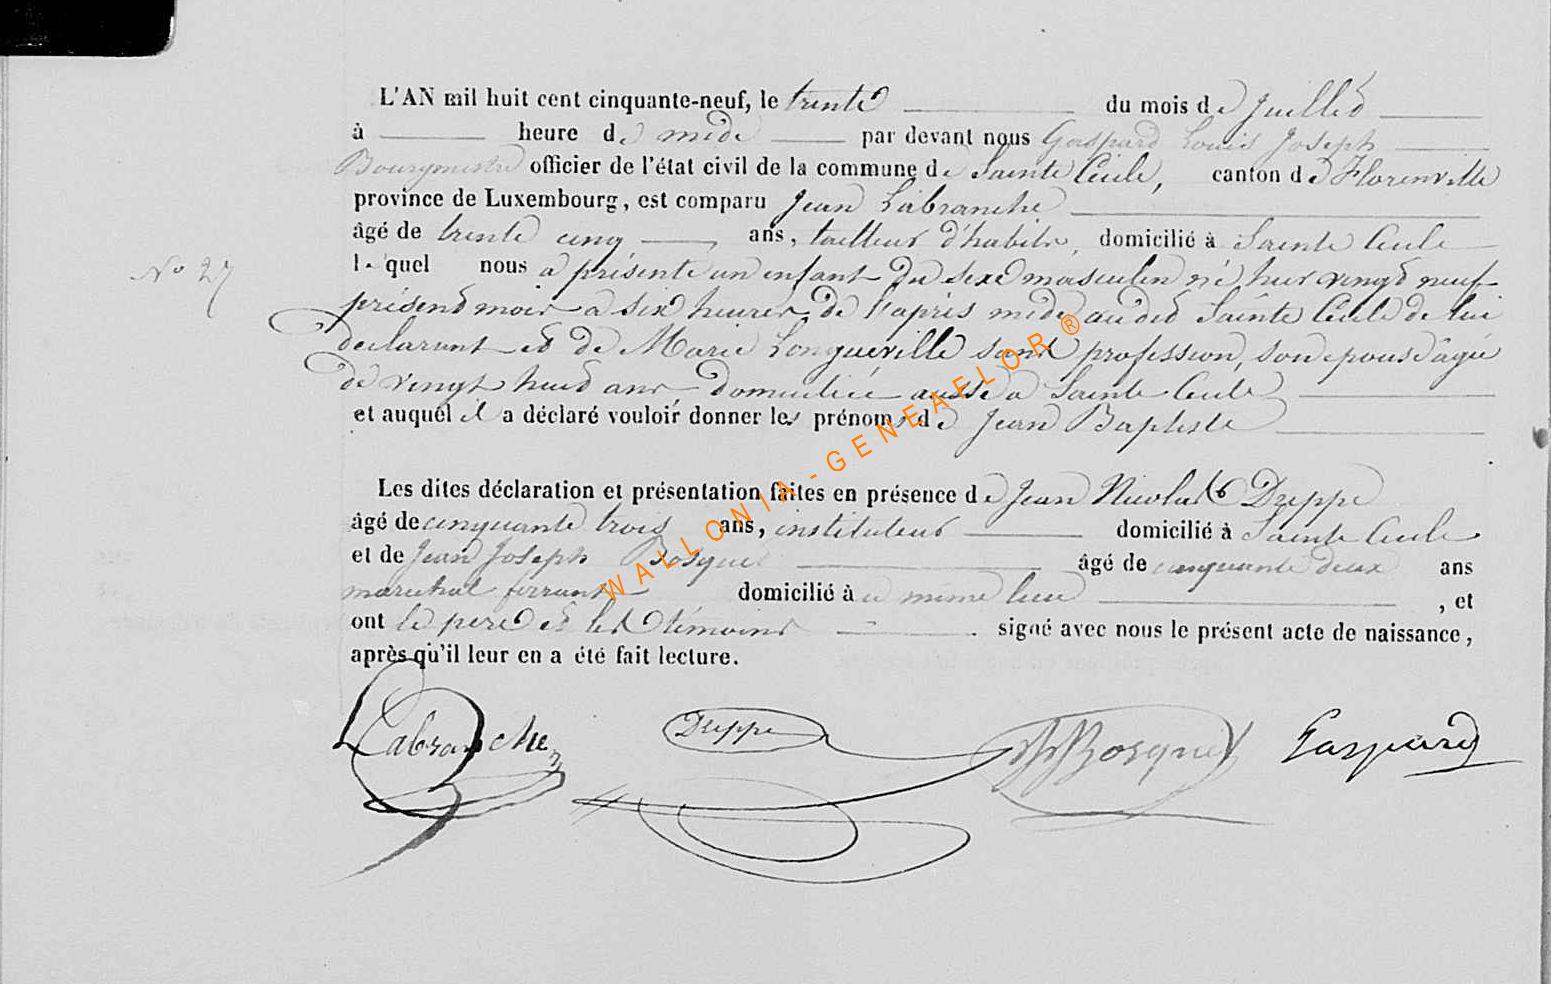 L'AN mil huit cent cinquante-neuf, le trente du mois de Juillet
à heure de midi par devant nous Gaspard Louis Joseph
Bourgmestre officier de l'état civil de la commune de Sainte Cecile, canton de Florenville
province de Luxembourg, est comparu Jean Labranche
âgé de trente cinq ans, tailleur d'habits, domicilié à Sainte Cecile
N° 27
lequel nous a présenté un enfant du sexe masculin né hier vingt neuf
présent mois a six heures de l'après midi audit Sainte Cecile de lui
declarant et de Marie Longueville sans profession, son epouse âgée
de vingt huit ans, domiciliée aussi a Sainte Cecile
et auquel il a déclaré vouloir donner les prénoms de Jean Baptiste
Les dites déclaration et présentation faites en présence de Jean Nicolas Dreppe
âgé de cinquante trois ans, instituteur domicilié à Sainte Cecile
et de Jean Joseph Bosquet âgé de cinquante deux ans
marechal ferrant domicilié à u même lieu , et
ont le pere et les témoins signé avec nous le présent acte de naissance,
après qu'il leur en a été fait lecture.
Labranche Dreppe Bosquet Gaspard
WALLONIA-GENEAELOR ®